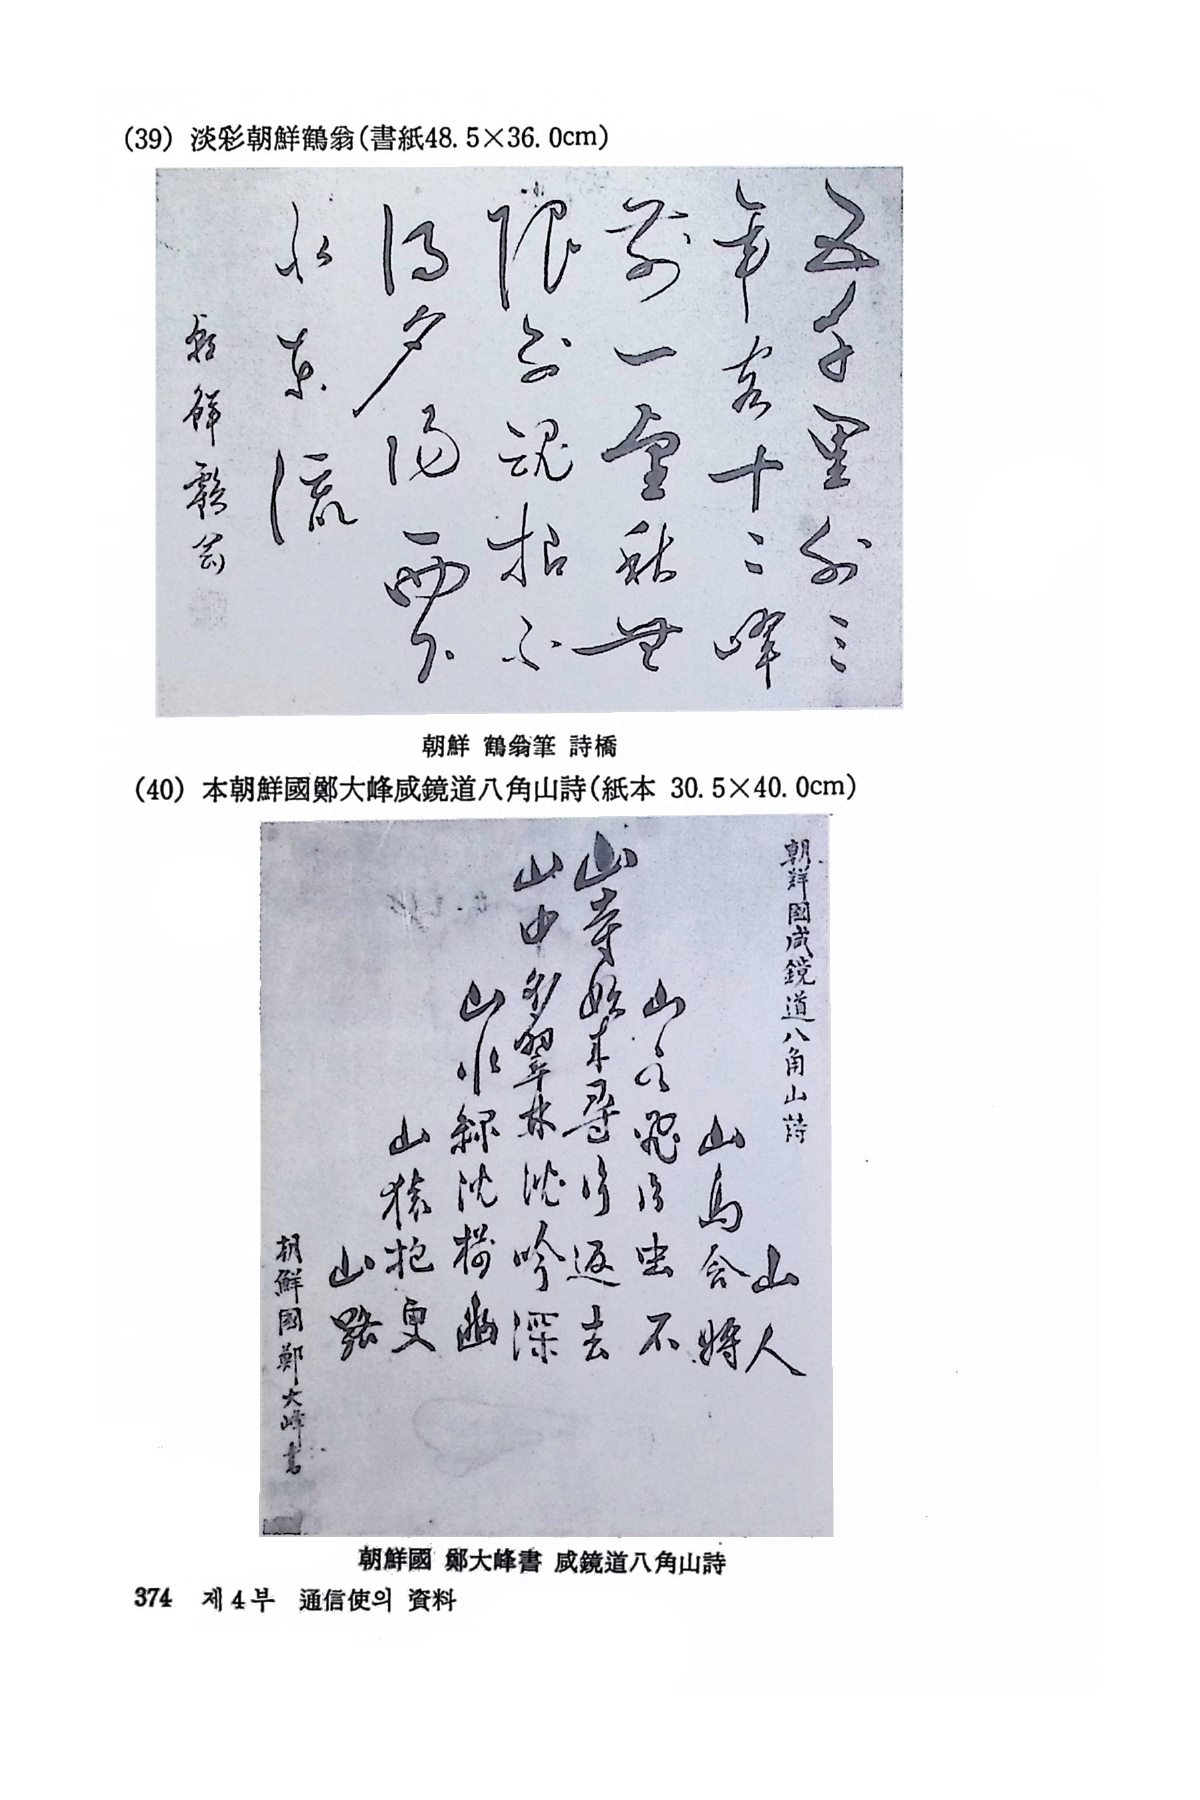 (39) 淡彩朝鮮鶴翁(書紙48.5×36.0cm)
五千里外三
年客十二峰
前一望秋無
限別魂招不
得夕陽西下
水東流
朝鮮鶴翁
朝鮮 鶴翁筆 詩橋
(40) 本朝鮮國鄭大峰咸鏡道八角山詩(紙本 30.5×40.0cm)
朝鮮國咸鏡道八角山詩
山人
山鳥將
山飛虫不
山寺始來尋返去
山中多翠林沈吟深
山水綠沈幽
山猿抱更
山路
朝鮮國鄭大峰書
朝鮮國 鄭大峰書 咸鏡道八角山詩
374 제4부 通信使의 資料